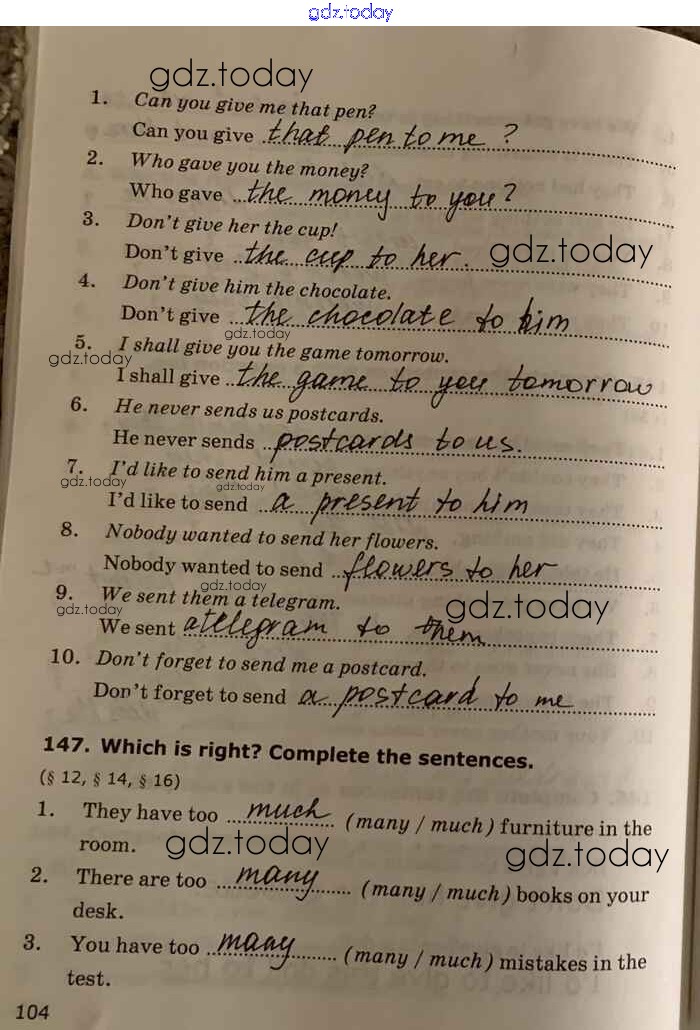 gdz.today
gdz.today
1. Can you give me that pen?
Can you give that pen to me ?
2. Who gave you the money?
Who gave the money to you?
3. Don't give her the cup!
Don't give the cup to her. gdz.today
4. Don't give him the chocolate.
Don't give the chocolate to him
gdz.today
5. I shall give you the game tomorrow.
gdz.today
I shall give the game to you tomorrow
6. He never sends us postcards.
He never sends postcards to us.
7. I'd like to send him a present.
gdz.today gdz.today
I'd like to send a present to him
8. Nobody wanted to send her flowers.
Nobody wanted to send flowers to her
gdz.today
9. We sent them a telegram.
gdz.today gdz.today
We sent a telegram to them
10. Don't forget to send me a postcard.
Don't forget to send a postcard to me
147. Which is right? Complete the sentences.
(§ 12, § 14, § 16)
1. They have too much (many / much) furniture in the
room. gdz.today gdz.today
2. There are too many (many / much) books on your
desk.
3. You have too many (many / much) mistakes in the
test.
104